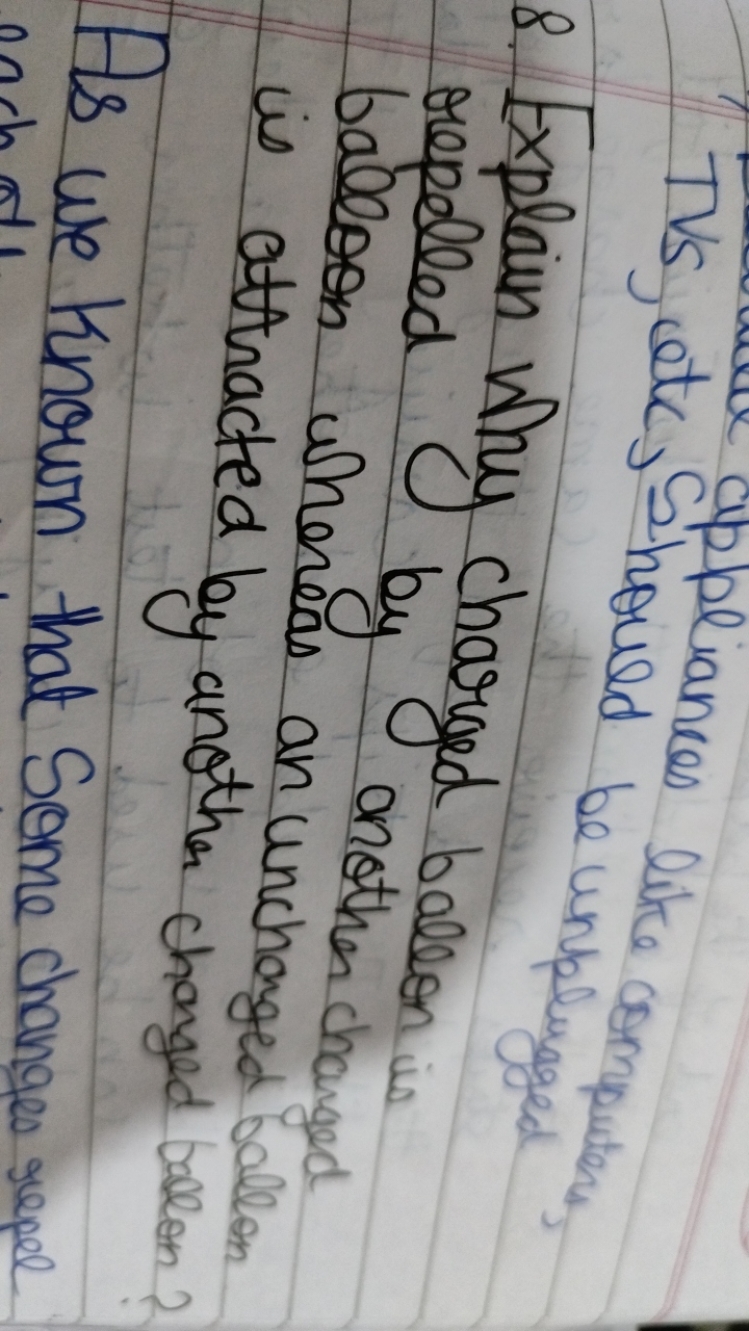 appliances like computers,
TVs, etc, Should be unplugged
8. Explain why charged balloon is
repelled by another charged
balloon whereas an uncharged ballon
is attracted by another charged ballon?
As we known that Some charges repel
each